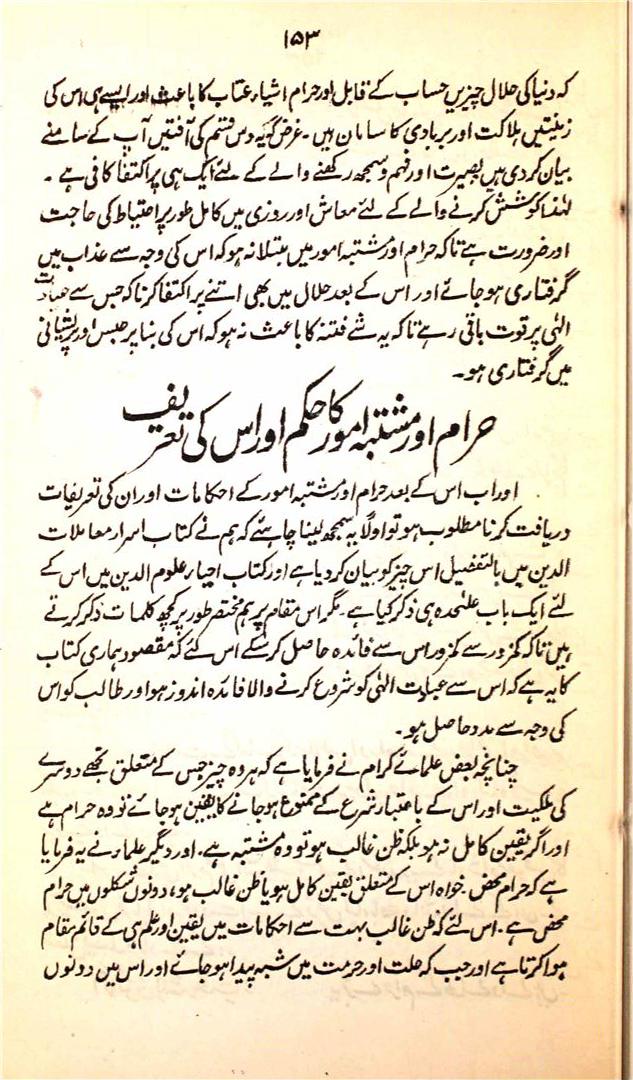 ۱۵۳
کہ دنیا کی حلال چیزیں حساب کے قابل اور حرام اشیاء عتاب کا باعث اور ایسے ہی اس کی
زینتیں ہلاکت اور بربادی کا سامان ہیں۔ غرضکہ یہ دس قسم کی آفتیں آپ کے سامنے
بیان کردی ہیں بصیرت اور فہم و سمجھ رکھنے والے کے لئے ایک ہی پر اکتفا کافی ہے۔
لہٰذا کوشش کرنے والے کے لئے معاش اور روزی میں کامل طور پر احتیاط کی حاجت
اور ضرورت ہے تاکہ حرام اور مشتبہ امور میں مبتلا نہ ہو کہ اس کی وجہ سے عذاب میں
گرفتاری ہوجائے اور اس کے بعد حلال میں بھی اتنے پر اکتفا کرنا کہ جس سے عبادت
الٰہی پر قوت باقی رہے تاکہ یہ شے فتنہ کا باعث نہ ہو کہ اس کی بنا پر حبس اور پریشانی
میں گرفتاری ہو۔
حرام اور مشتبہ امور کا حکم اور اس کی تعریف
اور اب اس کے بعد حرام اور مشتبہ امور کے احکامات اور ان کی تعریفات
دریافت کرنا مطلوب ہو تو اولاً یہ سمجھ لینا چاہئے کہ ہم نے کتاب اسرار معاملات
الدین میں بالتفصیل اس چیز کو بیان کردیا ہے اور کتاب احیاء علوم الدین میں اس کے
لئے ایک باب علٰحدہ ہی ذکر کیا ہے۔ مگر اس مقام پر ہم مختصر طور پر کچھ کلمات ذکر کرتے
ہیں تاکہ کمزور سے کمزور اس سے فائدہ حاصل کرسکے اس لئے کہ مقصود ہماری کتاب
کا یہ ہے کہ اس سے عبادت الٰہی کو شروع کرنے والا فائدہ اندوز ہو اور طالب کو اس
کی وجہ سے مدد حاصل ہو۔
چنانچہ بعض علمائے کرام نے فرمایا ہے کہ ہر وہ چیز جس کے متعلق تجھے دوسرے
کی ملکیت اور اس کے باعتبار شرع کے ممنوع ہوجانے کا یقین ہوجائے تو وہ حرام ہے
اور اگر یقین کامل نہ ہو بلکہ ظن غالب ہو تو وہ مشتبہ ہے۔ اور دیگر علماء نے یہ فرمایا
ہے کہ حرام محض۔ خواہ اس کے متعلق یقین کامل ہو یا ظن غالب ہو، دونوں شکلوں میں حرام
محض ہے۔ اس لئے کہ ظن غالب بہت سے احکامات میں یقین اور علم ہی کے قائم مقام
ہوا کرتا ہے اور جب کہ حلت اور حرمت میں شبہ پیدا ہوجائے اور اس میں دونوں